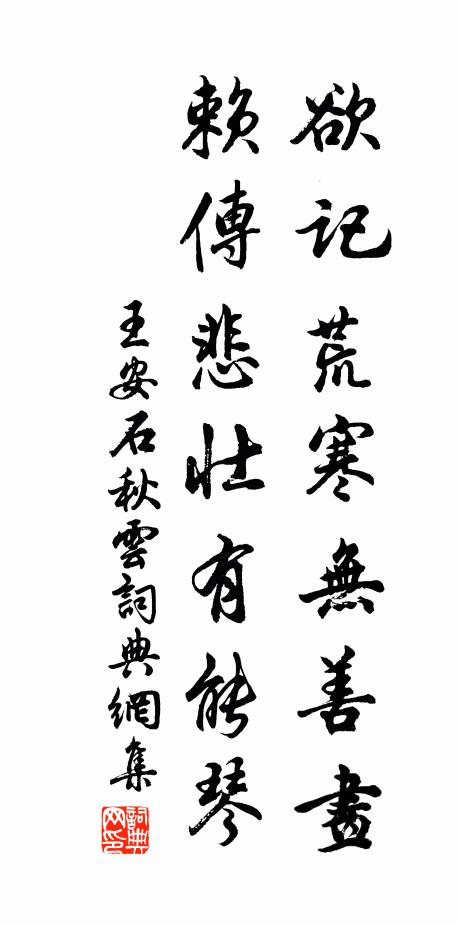 欲記荒寒無善畫
賴傳悲壯有能琴
王安石秋雲詞典網集
詞典網印